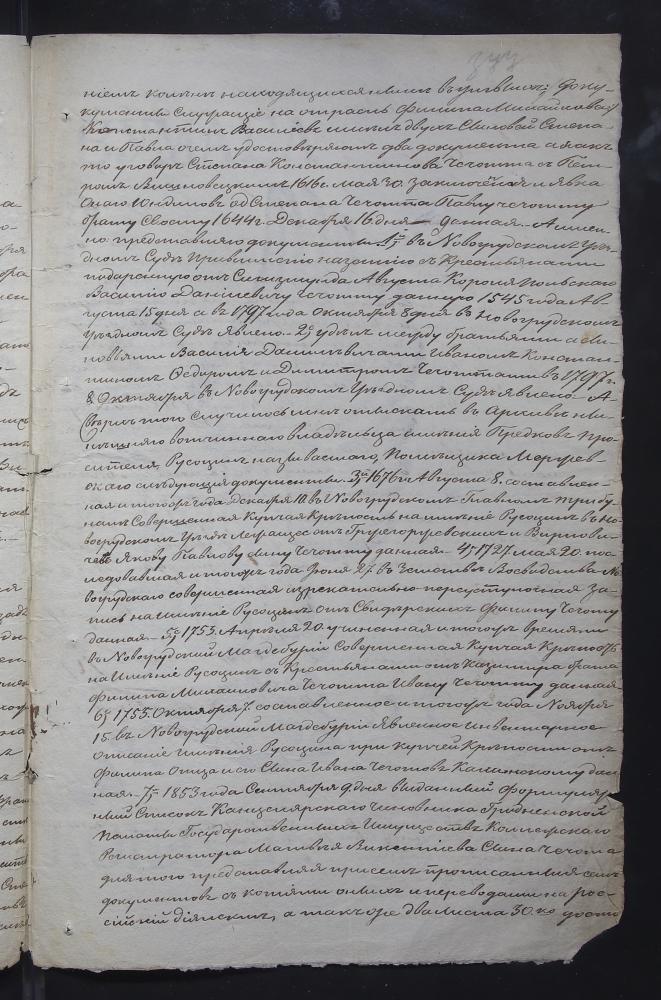 ніемъ коимъ находящихся нынѣ въ
кументы Служащіе на отрасль Филипа Михайлова,
Константинъ Васильевъ имѣлъ двухъ Сыновей Степа-
на и Павла о чемъ удостовѣряютъ два документа а какъ
то уговоръ Степана Константинова Чечотта съ Пет-
ромъ 1616 г. мая 30. заключенной и явка
онаго отъ Степана Чечотта Павлу Чечотту
брату Своему 1644 г. Декабря 16. дня данная. А имен-
но представляю документы 1е въ Новогрудскомъ Уѣз-
дномъ Судѣ Привиллегію на съ Крестьянами
подаренную отъ Сигизмунда Августа Короля Польскаго
Василію Даниловичу Чечотту данную 1545 года Ав-
густа 15 дня а въ 1797 года Октября 8 дня въ Новогрудскомъ
Уѣздномъ Судѣ явлено. 2е удѣлъ между братьями а сы-
новьями Василія Даниловичами Иваномъ Констан-
тиномъ Федоромъ и Димитріемъ Чечоттами въ 1797 г.
8 Октября въ Новогрудскомъ Уѣздномъ Судѣ явлено. А
Сверхъ того случилось мнѣ отыскать въ Архивѣ ны-
нѣшняго вотчиннаго владѣльца имѣнія Предковъ про-
сителя, Русоцинъ называемаго, Помѣщика
скаго слѣдующія документы. 3е 1676 г. Августа 8. составлен-
ная и тогожъ года Декабря 10. въ Новогрудскомъ Главномъ Трибу-
налѣ Совершенная Купчая Крѣпость на имѣніе Русоцинъ въ Но-
вогрудскомъ Уѣздѣ Лежащее отъ
Якову Павлову сыну Чечотту данная. 4е 1727. мая 20. по-
слѣдовавшая и тогожъ года Іюня 27. въ Земствѣ Воеводства Но-
вогрудскаго совершенная переуступочная За-
пись на имѣніе Русоцинъ отъ Свидерскихъ Филипу Чечотту
данная. 5е 1753. Апрѣля 20. учиненная и тогожъ времени
въ Новогрудскій Магдебургіи Совершенная Купчая Крѣпость
на Имѣніе Русоцинъ съ Крестьянами отъ Казимира брата
Филипа Михайловича Чечотта Ивану Чечотту данная.
6е 1755. Октября 7. составленное и тогожъ года Ноября
15. въ Новогрудской Магдебургіи явленное Инвентарное
описаніе имѣнія Русоцина при купчей Крѣпости отъ
Филипа отца и Сына Ивана Чечотовъ Калинскому дан-
ная. 7е 1853 года Сентября 9 дня выданный Формуляр-
ный Списокъ Канцелярскаго Чиновника Гродненской
Палаты Государственныхъ Имуществъ Коллежскаго
Регистратора Матвѣя Викентіева Сына Чечота
для того представляя при семъ прописанныя семь
документовъ съ копіями оныхъ и переводами на рос-
сійскій діялектъ, а также два листа 30. ко